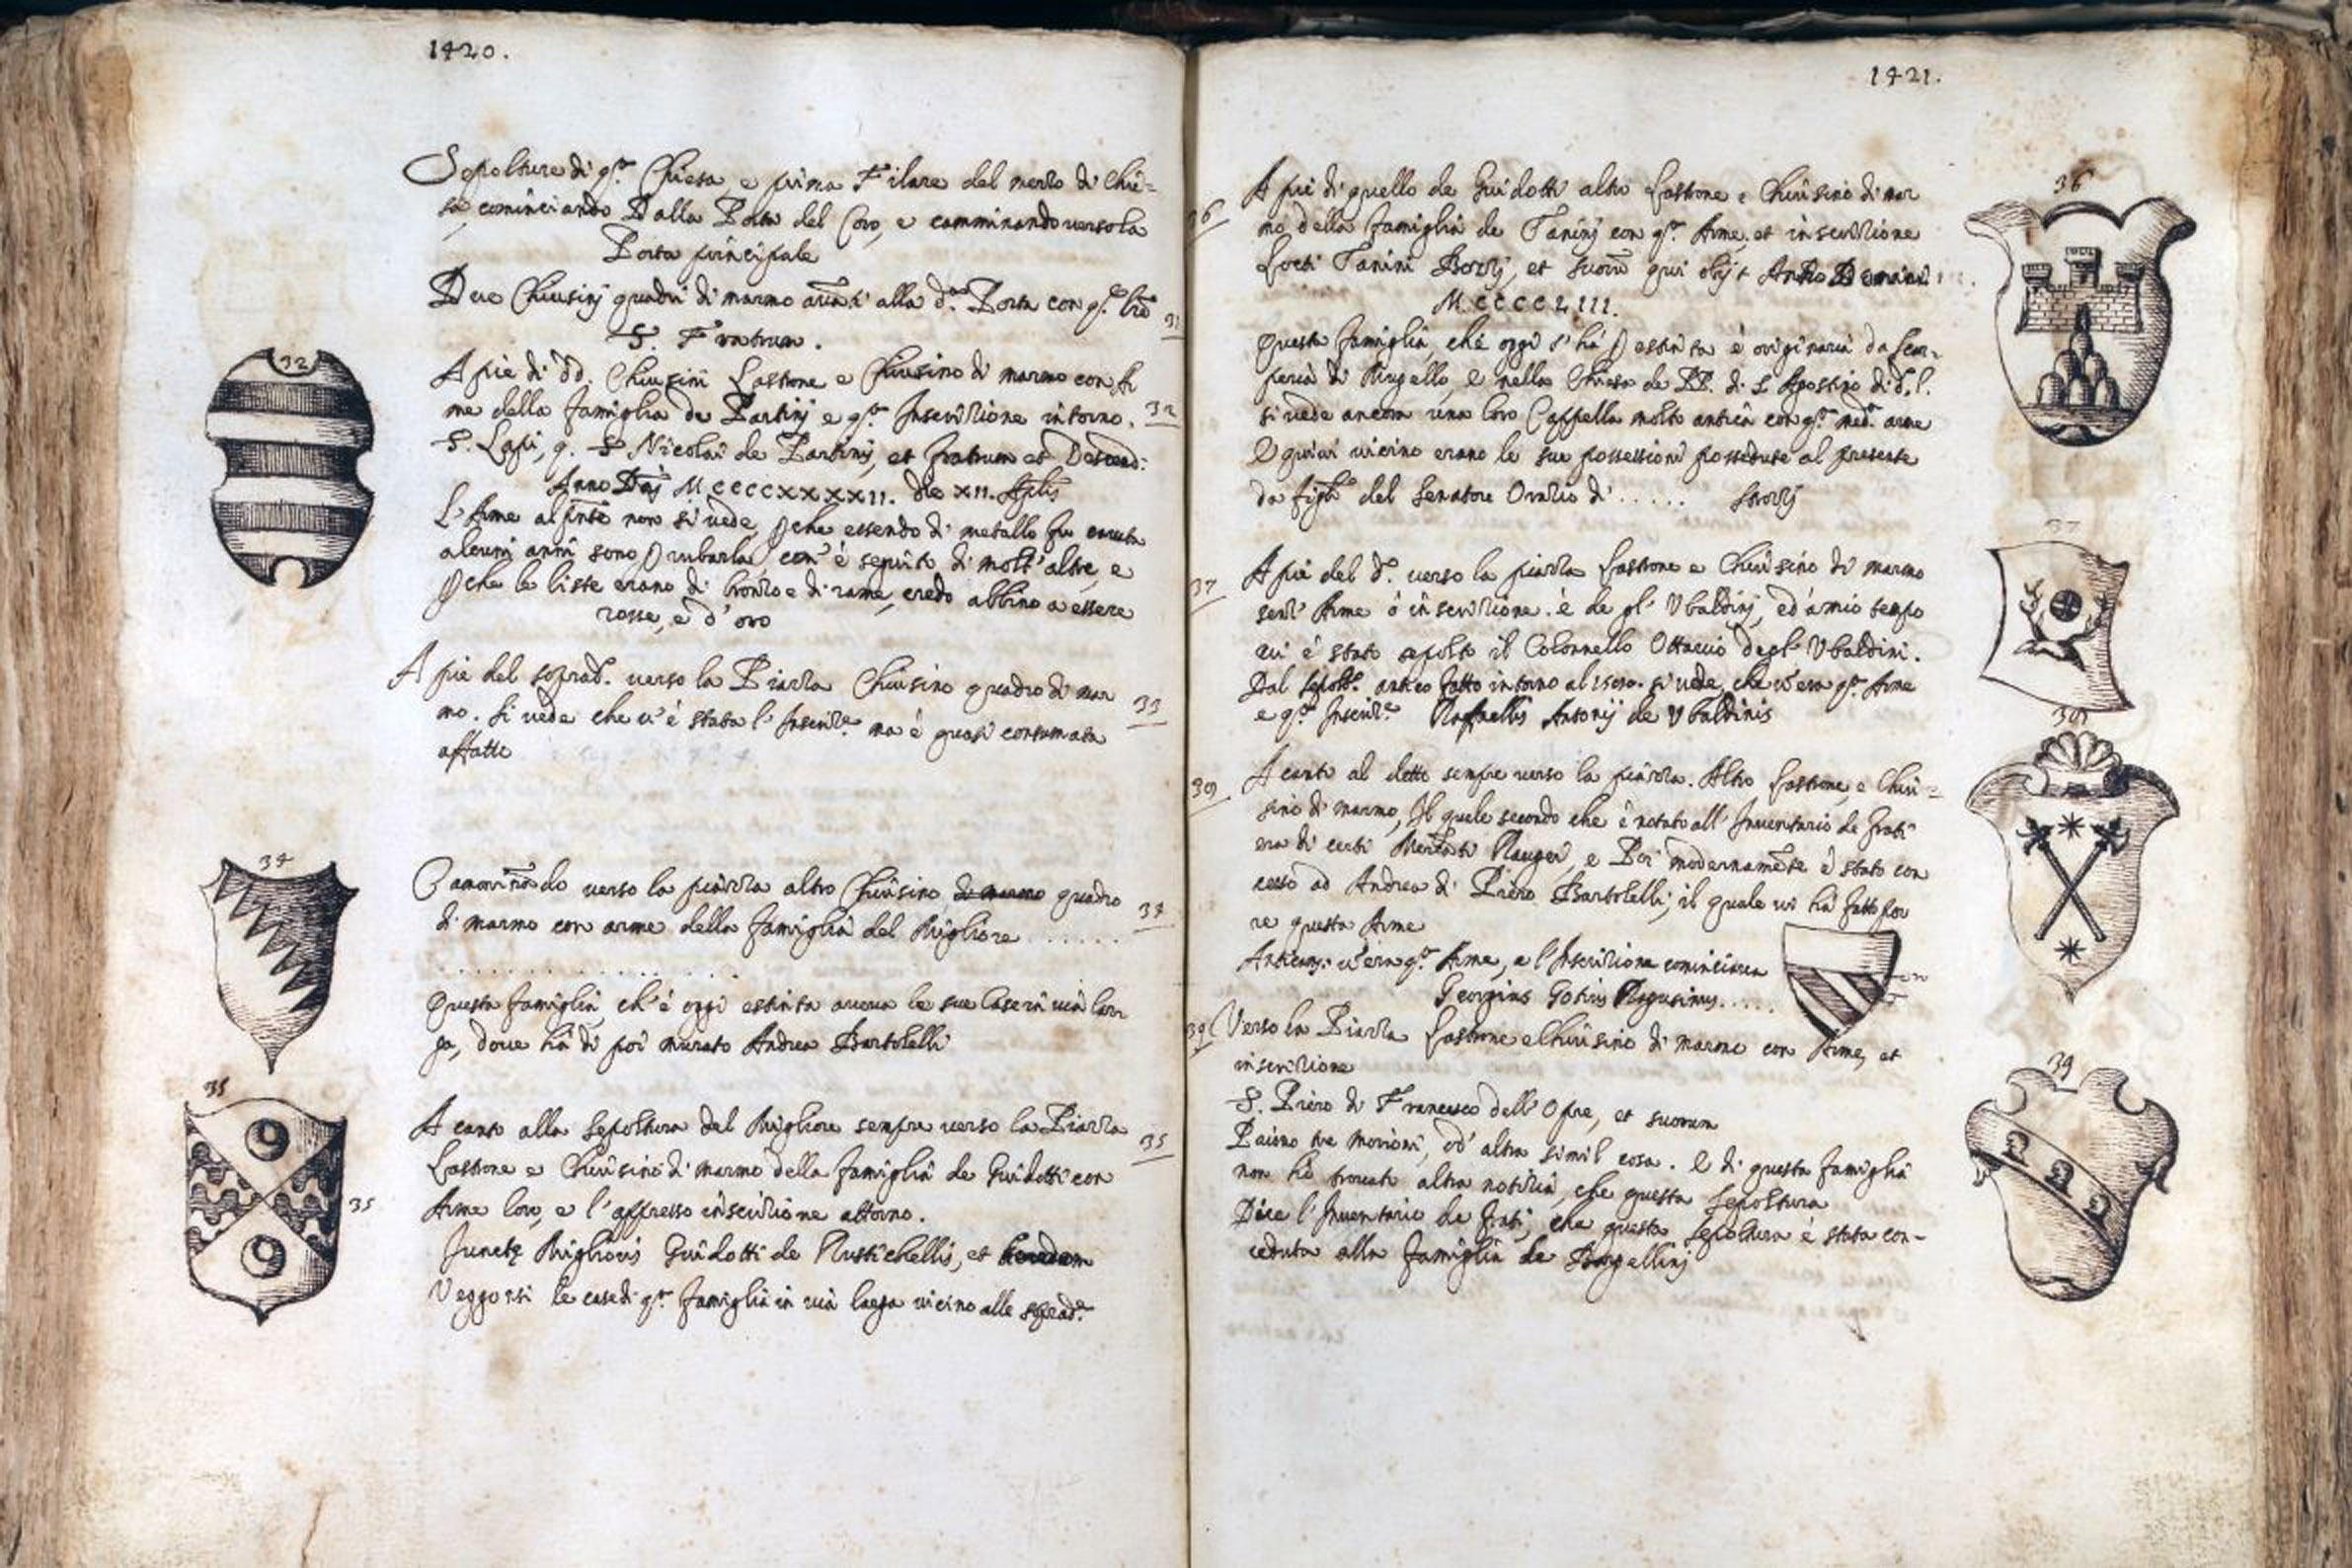 1420.
Sepolture di q.ta Chiesa, e prima Filare del mezzo di Chie=
sa, cominciando Dalla Porta del Coro, e camminando verso la
Porta principale
Due Chiusinj quadri di marmo avanti alla d.a Porta con q.e lre
31
S. Fratrum.
32
A pie di dd. Chiusini Lastrone e Chiusino di marmo con Ar
me della famiglia de Partinj e q.ta Inscrizione intorno.
32
S. Lapi, q. S Nicolai de Partinij, et fratrum et Descend:
Anno Dnj MCCCCXXXXII. die XII. Aplis
L'Arme al pnte non si vede, pche essendo di metallo fu cavata
alcuni anni sono p rubarla, com'è seguito di molt'altre, e
pche le liste erano di bronzo e di rame, credo abbino a essere
rosse, e d'oro
A piè del soprad.o verso la Piazza Chiusino quadro di mar
mo. Si vede che v'è stata l'Inscriz.e ma è quasi consumata
33
affatto
34
Camminando verso la piazza altro Chiusino di marmo quadro
di marmo con arme della famiglia del Migliore ......
34
Questa famiglia, ch'è oggi estinta aveva le sue Case in via lar
ga, dove hà di poi murato Andrea Bartolelli
35
A canto alla sepoltura del Migliore sempre verso la Piazza
35
Lastrone e Chiusino di marmo della famiglia de Guidotti con
35
Arme loro, e l'appresso inscrizione attorno.
Junctę Miglioris Guidotti de Rustichellis, et heredum
Veggonsi le case di q.ta famiglia in via larga vicino alle soprad.e
1421.
36
A piè di quello de Guidotti altro Lastrone e Chiusino di mar
36
mo della famiglia de Taninj con q.ta Arme, et inscrizione
Loeti Tanini Bozzj, et suorū qui obijt Anno Domini
MCCCCLIII.
Questa famiglia, che oggi s'hà p estinta è originaria da Scar-
peria di Mugello, e nella Chiesa de PP. di S. Agostino di d.o l.
si vede ancora una loro Cappella molto antica con q.ta med.a arme
E quivi vicino erano le sue possessioni possedute al presente
da figli del Senatore Orazio di ..... Strozzj
37
A piè del d.o verso la piazza Lastrone e Chiusino di marmo
37
senz'Arme ò inscrizione. è de gl'Ubaldinj, ed à mio tempo
vi è stato sepolto il Colonnello Ottavio degl'Ubaldini.
Dal Sepolt.o antico fatto intorno al 1500. si vede, che v'era q.ta Arme
e q.ta Inscriz.e Raffaellis Antonij de Ubaldinis
38
A canto al detto sempre verso la piazza. Altro Lastrone, e Chiu=
38
sino di marmo, Il quale secondo che è notato all'Inventario de frati
era di certi Mercati Raugei, e Poi modernamte è stato con
cesso ad Andrea di Piero Bartolelli; il quale vi hà fatto por
re questa Arme
Anticam. v'era q.ta Arme, e l'Inscrizione cominciava
Georgius Gotius Ragusinus.....
39 Verso la Piazza Lastrone e Chiusino di marmo con Arme, et
inscrizione
39
S. Piero di Francesco dell'Opre, et suorum
Paiono tre morioni, od'altra simil cosa. E di questa famiglia
non hò trovato altra notizia, che questa sepoltura
Dice l'Inventario de frati, che questa sepoltura è stata con-
ceduta alla famiglia de Borgellinj